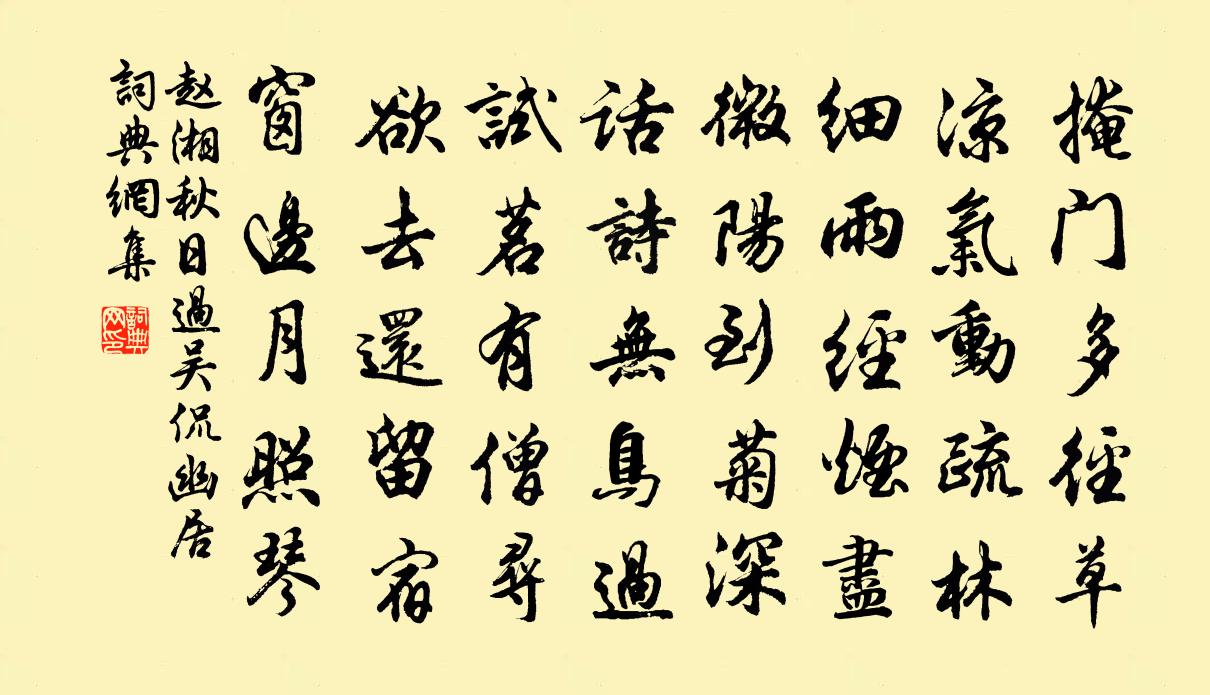 掩门多徑草
涼氣動疏林
細雨經煙盡
微陽到菊深
话詩無鳥過
試茗有僧尋
欲去還留宿
窗邊月照琴
赵湘秋日過吴侃幽居
詞典網集
詞典网印